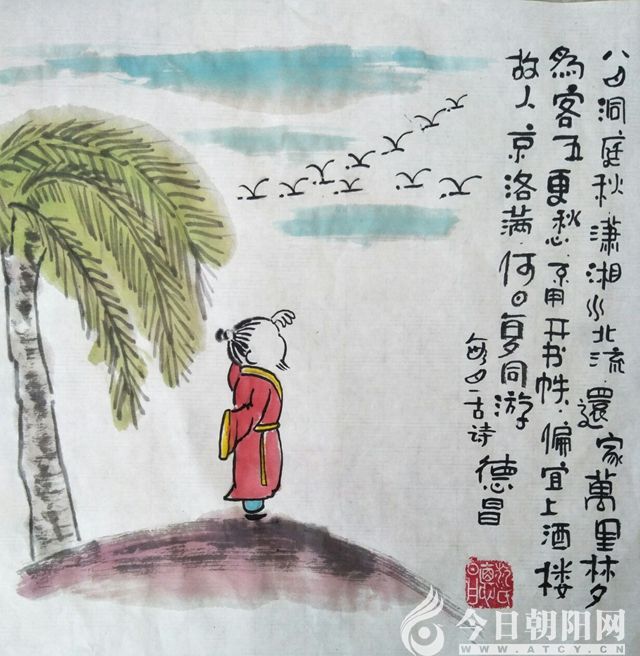 八月洞庭秋.潇湘水北流.還家萬里梦
為客五更愁.不用开书帙.偏宜上酒楼
故人京洛满.何日复同游
每日一古诗
德昌
今日朝阳网
WWW.ATCY.CN